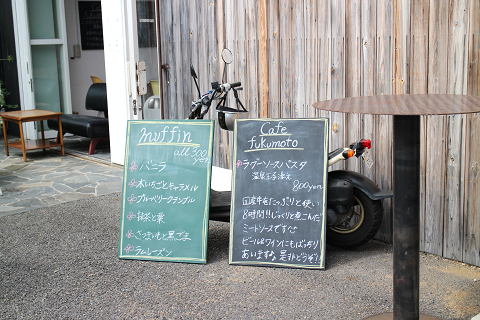 muffin
all 300 yen
バニラ
木いちごとキャラメル
ブルーベリークランブル
抹茶と栗
さつまいもと黒ごま
ラムレーズン
Cafe
fukumoto
ラグーソースパスタ
温泉玉子添え
800yen
国産牛をたっぷりと使い
8時間!!じっくりと煮こんだ
ミートソースです
ビールやワインにもばっちり
あいますよ 是非どうぞ!